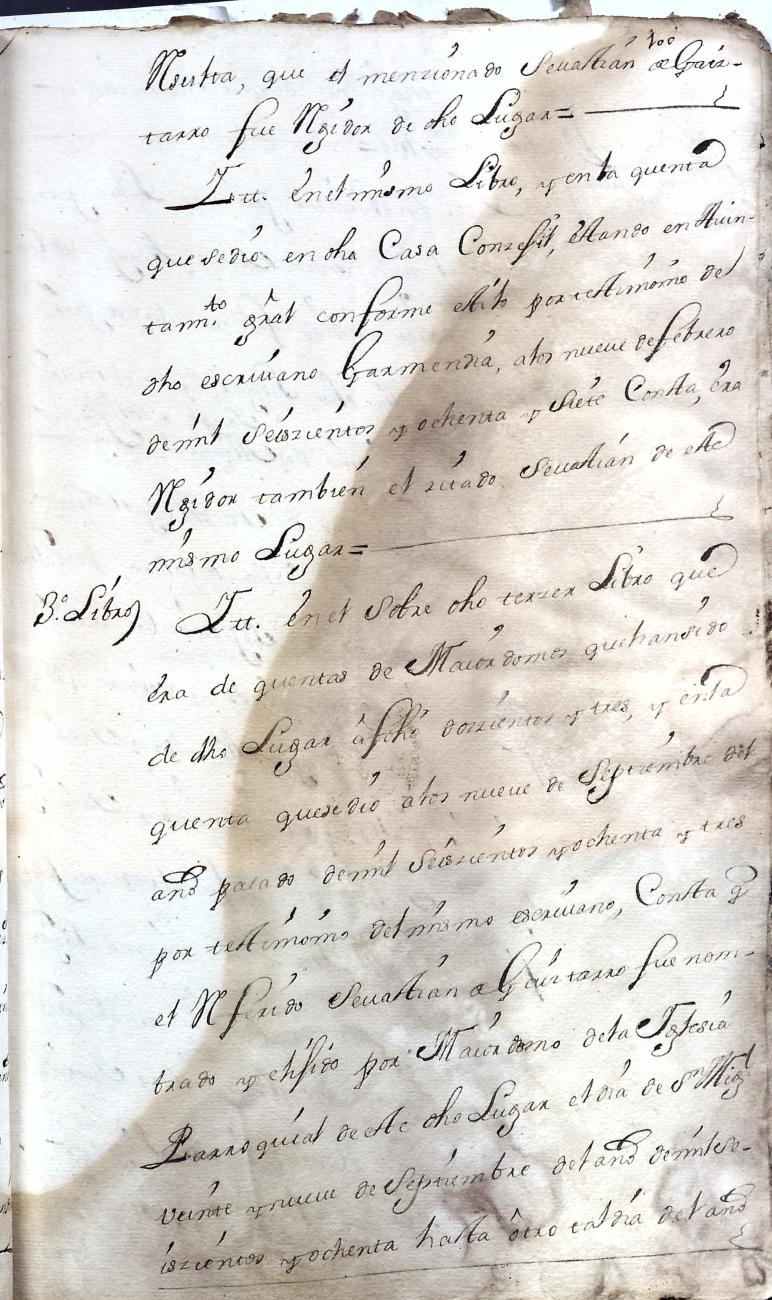 Resulta, que el menzionado Sevastián de Gaiz-
tarro fue Regidor de dho Lugar=
Itt. en el mismo Libro, y en la quenta
que se dió en dha Casa Conzejil, estando en Aiun-
tamto. gral conforme estilo por testimonio del
dho escrivano Garmendia, a los nueve de febrero
de mil seiszientos y ochenta y siete Consta, éra
Regidor también el zitado Sevastián de este
mismo Lugar=
3.º Libro) Itt. en el sobre dho terzer Libro que
éra de quentas de Maiordomos que han sido
de dho Lugar â folio doszientos y tres, y en la
quenta que se dió a los nueve de Septiembre del
año pasado de mil seiszientos y ochenta y tres
por testimonio del mismo escrivano, Consta q̃
el Referido Sevastián de Gaiztarro fue nom-
brado y elijido por Maiordomo de la Iglesia
Parroquial de este dho Lugar el día de Sn Migl
veinte y nueve de Septiembre del año de mil se-
iszientos y ochenta hasta ôtro tal día del año